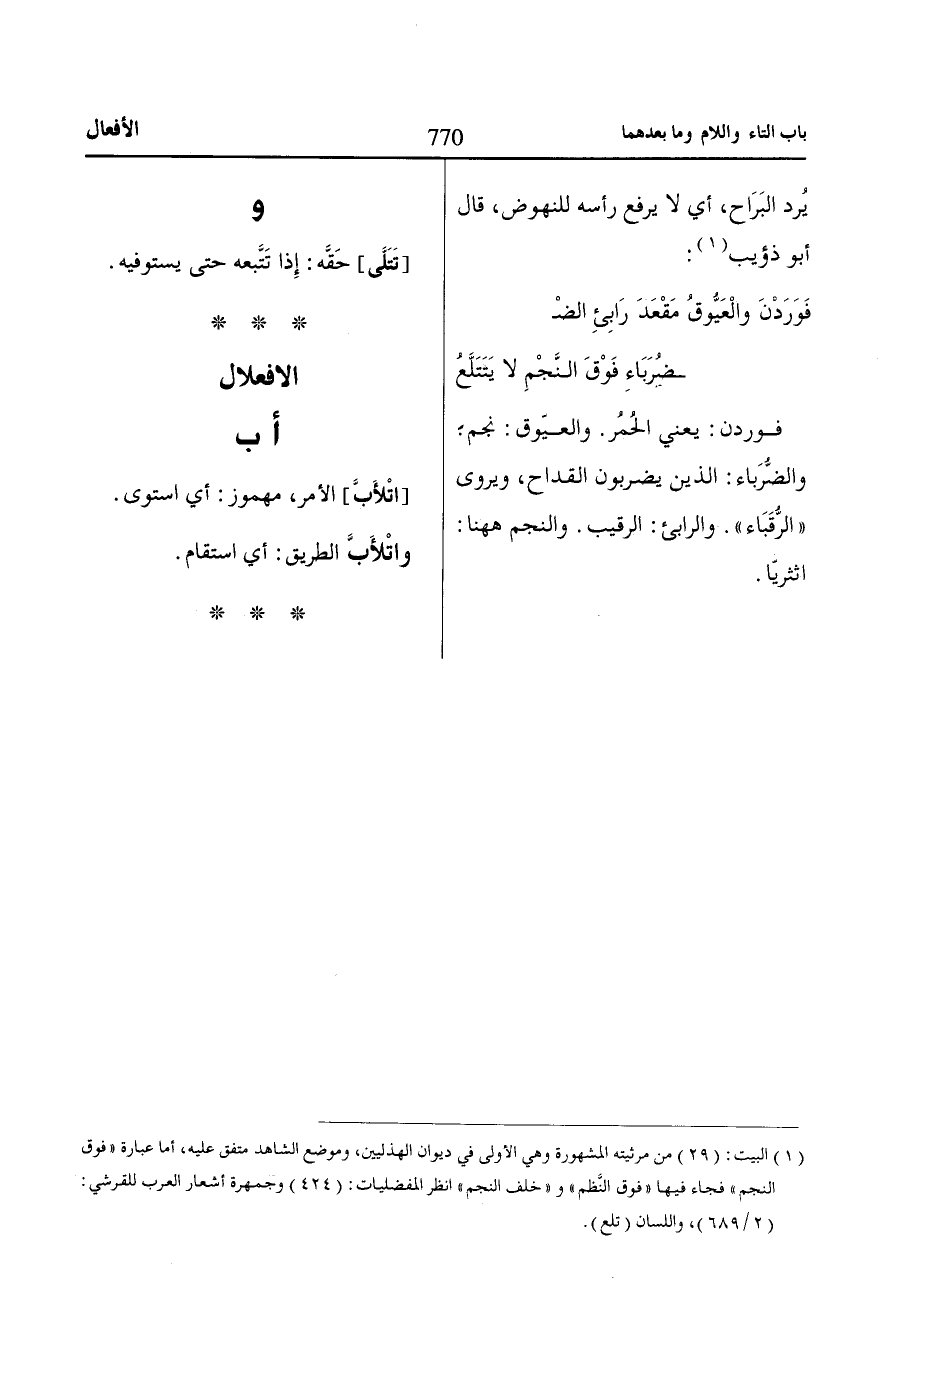 باب التاء واللام وما بعدهما
770
الأفعال
يُرد البَرَاح، أي لا يرفع رأسه للنهوض، قال
أبو ذؤيب(١):
فَوَرَدْنَ والْعَيُّوقُ مَقْعَدَ رَابِئِ الضْـ
ـضُرَبَاءِ فَوْقَ النَّجْمِ لا يَتَتَلَّعُ
فوردن: يعني الحُمُر. والعيّوق: نجم؛
والضُّرَباء: الذين يضربون القداح، ويروى
«الرُّقَبَاء». والرابئ: الرقيب. والنجم ههنا:
اثثريّا.
و
[تَتَلَّى] حَقَّه: إِذا تَتَّبعه حتى يستوفيه.
* * *
الافعلال
أ ب
[اتْلأَبَّ] الأمر، مهموز: أي استوى.
واتْلأَبَّ الطريق: أي استقام.
* * *
(١) البيت: (٢٩) من مرثيته المشهورة وهي الأولى في ديوان الهذليين، وموضع الشاهد متفق عليه، أما عبارة «فوق
النجم» فجاء فيها «فوق النَّظم» و «خلف النجم» انظر المفضليات: (٤٢٤) وجمهرة أشعار العرب للقرشي:
(٢/٦٨٩)، واللسان (تلع).